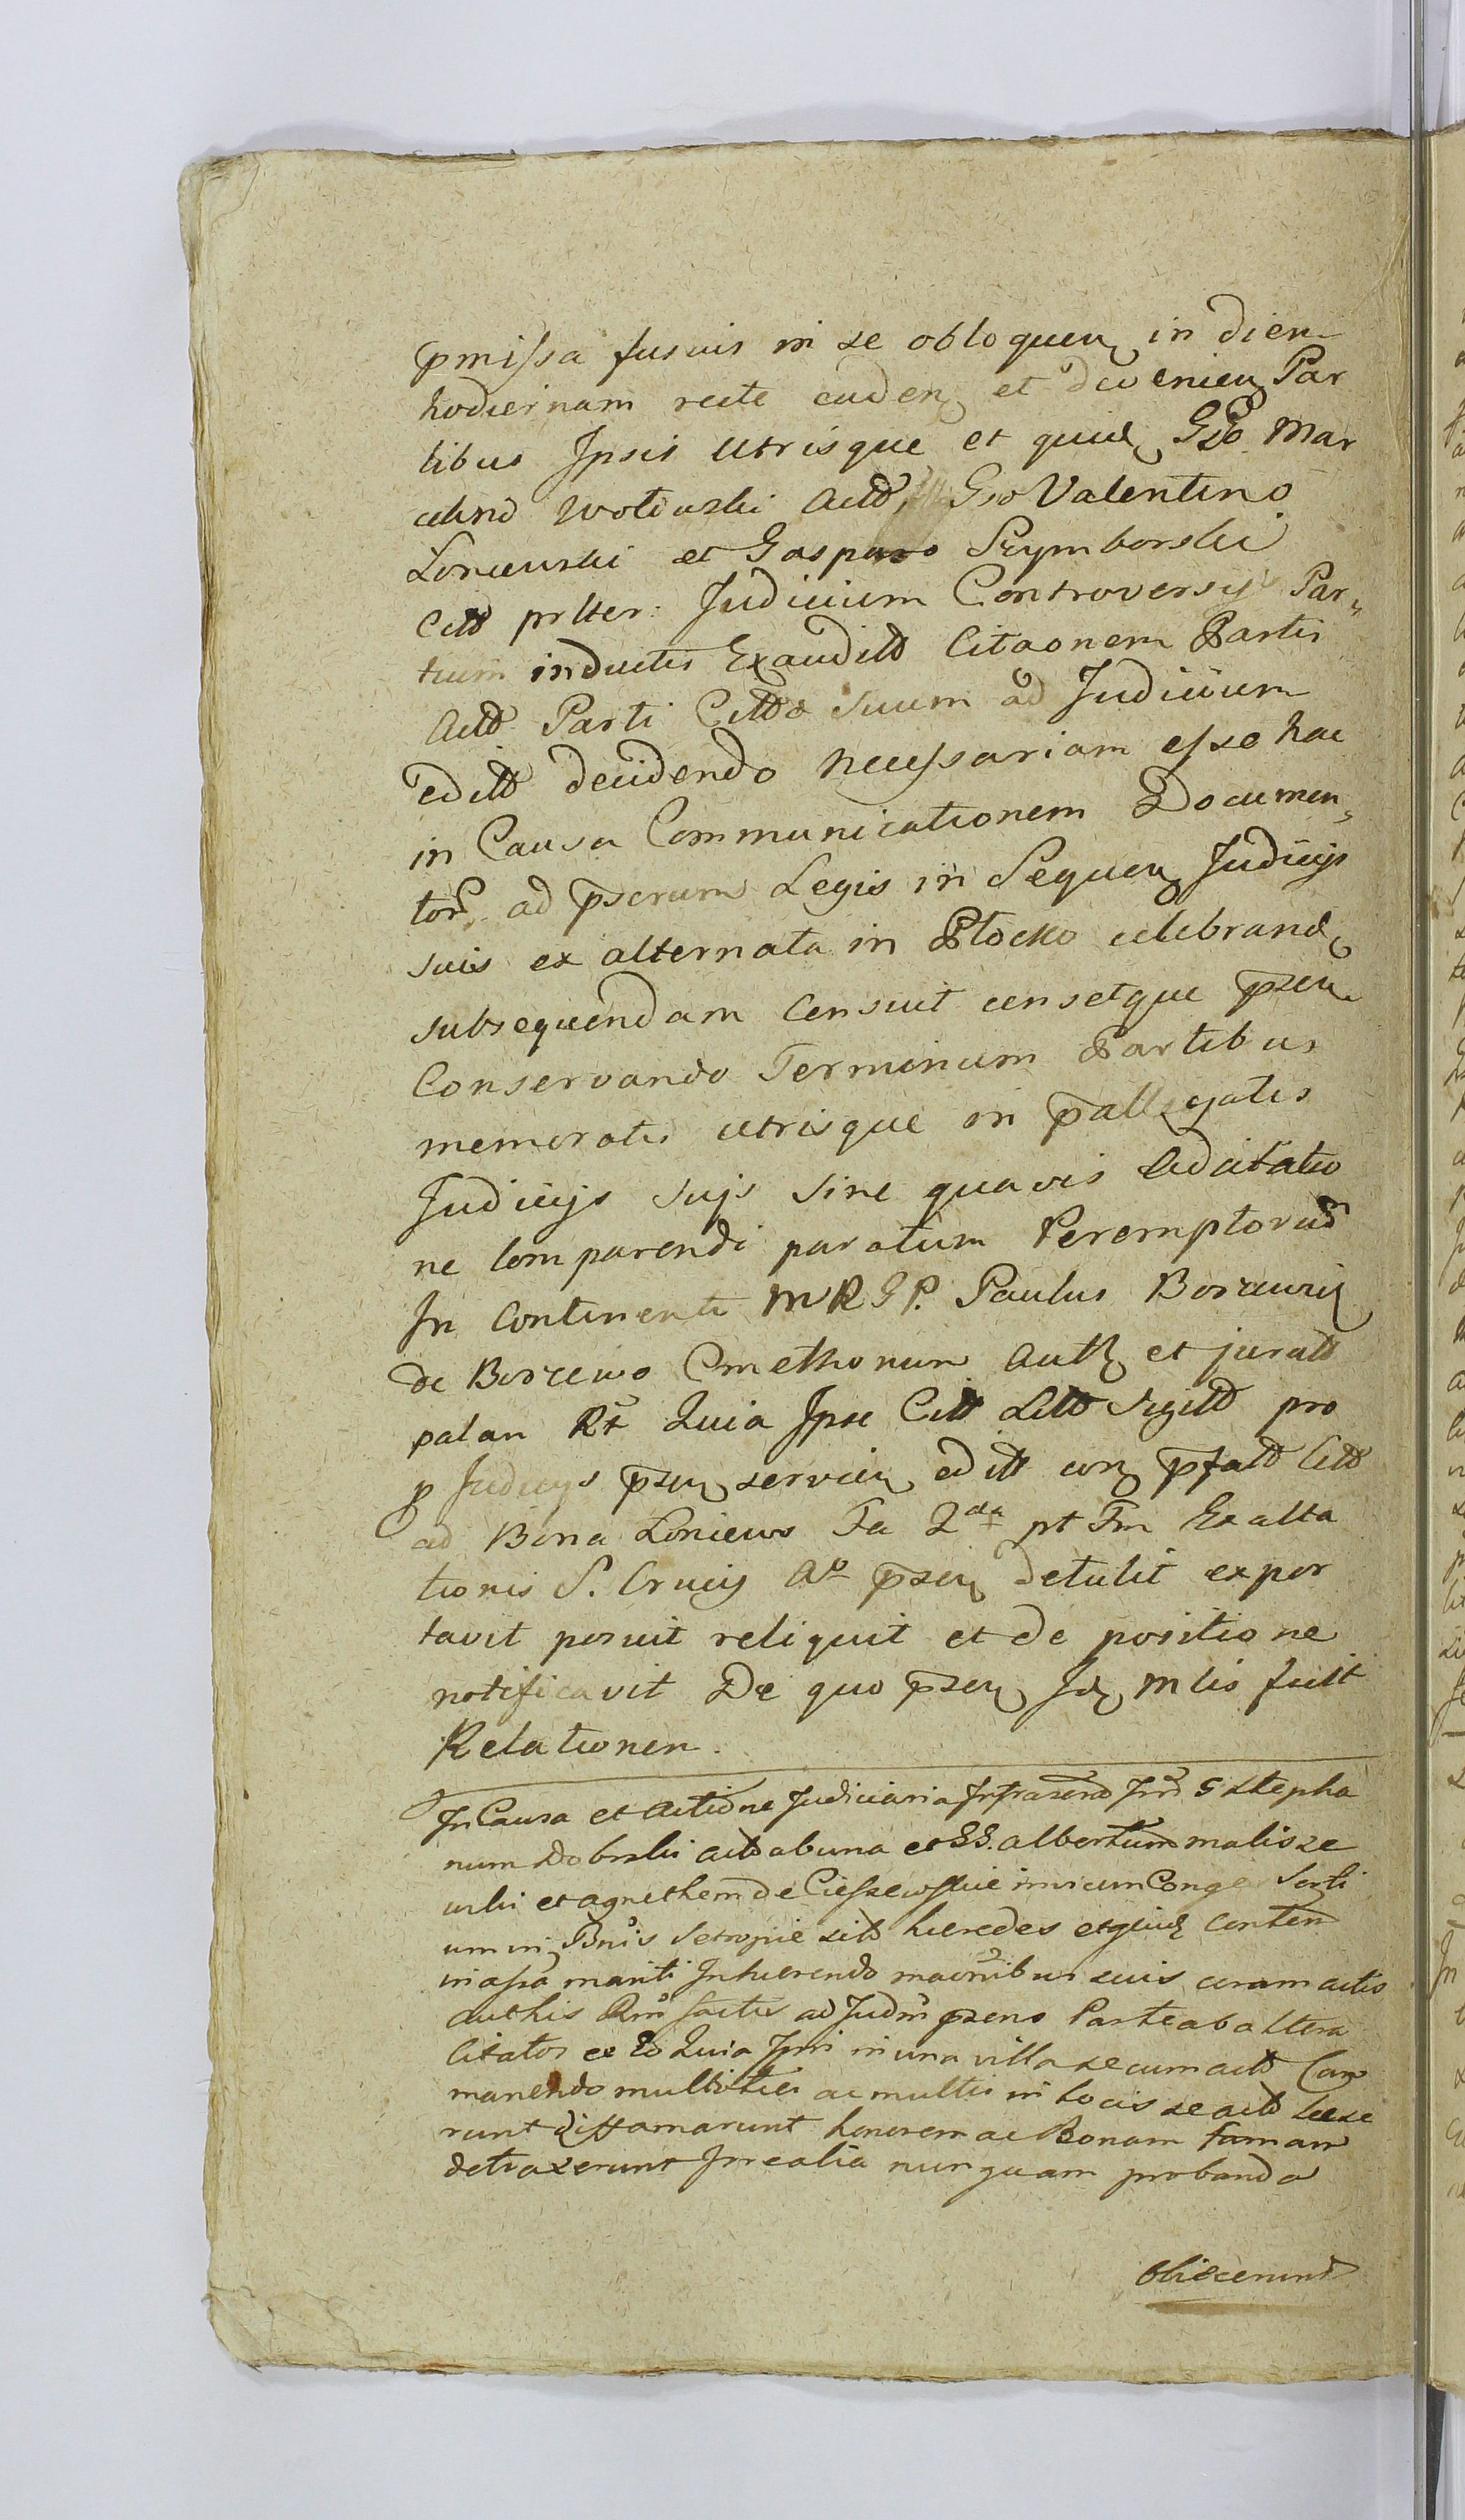 pmissa fusius in se obloquen in diem
hodiernam recte caden et devenien Par
tibus Ipsis Utrisque et quid Gso Mar
celino Wolowski Actt, Gso Valentino
Loniewski et Gasparo Szymborski
Citt prlter: Judicium Controversijs Par„
tium inductis Exauditt Citaonem Partis
Actt Parti Cittae Suum ad Judicium
editt decidendo necessariam esse hac
in Causa Communicationem Documen„
tor ad pscrum Legis in Sequen Judicijs
suis ex alternata in Plocko celebrand
subsequendam Censuit censetque psen
Conservando Terminum Partibus
memoratis utrisque in pallegatis
Judicijs suis sine quavis Adcitatio
ne comparendi paratum Peremptorium
In Continenti MRGP. Paulus Borzewski
de Borzewo Cmethonum Auth et juratt
palam Rt Quia Ipse Citt Litt Sigilt pro
p Judicijs psen servien editt con pfatt Citt
ad Bona Loniewo Fa 2da pt Fm Exalta
tionis S. Crucis Ao psen detulit expor
tavit posuit reliquit et de positione
notificavit De quo psen Jd Mlis fecit
Relationem.
In Causa et Actione Judiciaria Infrascrip Inr G Stepha
num Dobrski Actt ab una et GG. Albertum Malisze
wski et Agnethem de Cieszewskie invicem Conge Sorti
um in Bnis Setropie sitt heredes et quid conten
in assa mariti Inhaerendo maonibus suis coram actis
authis Rm factis ad Judm psens Parte ab altera
Citatos ex eo Quia Ipsi in una villa secum actt
manendo multoties ac multis in locis se actt laese
runt diffamarunt honorem ac Bonam famam
detraxerunt Irrealia nunquam probanda
obiecerunt